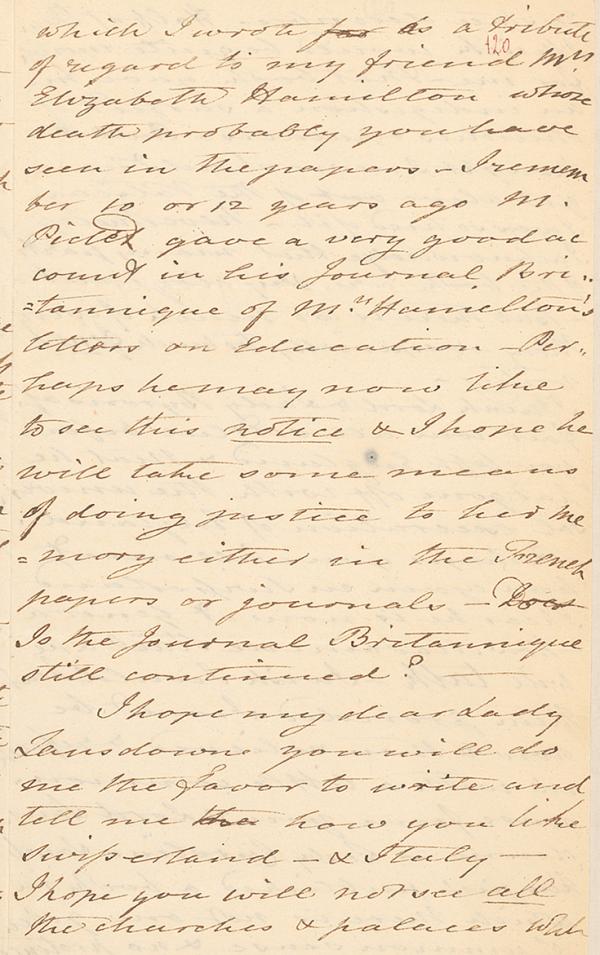 which I wrote for as a tribute
120
of regard to my friend Mrs
Elizabeth Hamilton whose
death probably you have
seen in the papers - I remem
ber 10 or 12 years ago M.
Pictet gave a very good ac
count in his Journal Bri..
=tannique of Mrs Hamilton's
letters on Education - Per..
haps he may now like
to see this notice & I hope he
will take some means
of doing justice to her me
=mory either in the French
papers or journals - Does
Is the Journal Britannique
still continued? —
I hope my dear Lady
Lansdowne you will do
me the favor to write and
tell me the how you like
Swisserland - & Italy —
I hope you will not see all
the churches & palaces with